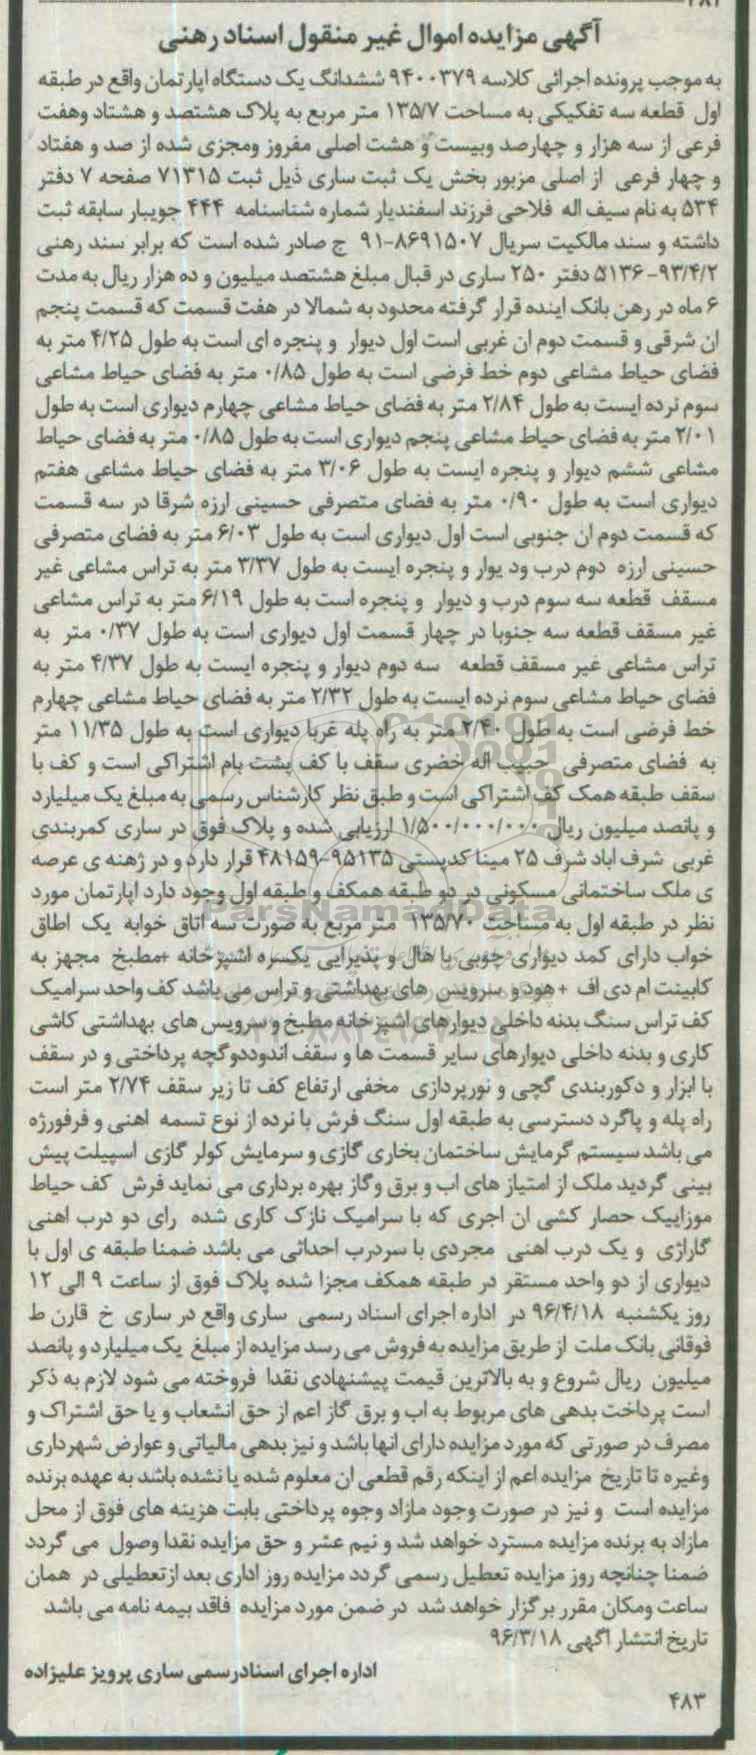 آگهی مزایده اموال غیر منقول اسناد رهنی
به موجب پرونده اجرائی کلاسه ۹۴۰۰۳۷۹ ششدانگ یک دستگاه اپارتمان واقع در طبقه
اول قطعه سه تفکیکی به مساحت ۱۳۵/۷ متر مربع به پلاک هشتصد و هشتاد وهفت
فرعی از سه هزار و چهارصد وبیست و هشت اصلی مفروز ومجزی شده از صد و هفتاد
و چهار فرعی از اصلی مزبور بخش یک ثبت ساری ذیل ثبت ۷۱۳۱۵ صفحه ۷ دفتر
۵۳۴ به نام سیف اله فلاحی فرزند اسفندیار شماره شناسنامه ۴۴۴ جویبار سابقه ثبت
داشته و سند مالکیت سریال ۸۶۹۱۵۰۷-۹۱ ج صادر شده است که برابر سند رهنی
۹۳/۴/۲-۵۱۳۶ دفتر ۲۵۰ ساری در قبال مبلغ هشتصد میلیون و ده هزار ریال به مدت
۶ ماه در رهن بانک اینده قرار گرفته محدود به شمالا در هفت قسمت که قسمت پنجم
ان شرقی و قسمت دوم ان غربی است اول دیوار و پنجره ای است به طول ۴/۲۵ متر به
فضای حیاط مشاعی دوم خط فرضی است به طول ۰/۸۵ متر به فضای حیاط مشاعی
سوم نرده ایست به طول ۲/۸۴ متر به فضای حیاط مشاعی چهارم دیواری است به طول
۲/۰۱ متر به فضای حیاط مشاعی پنجم دیواری است به طول ۰/۸۵ متر به فضای حیاط
مشاعی ششم دیوار و پنجره ایست به طول ۳/۰۶ متر به فضای حیاط مشاعی هفتم
دیواری است به طول ۰/۹۰ متر به فضای متصرفی حسینی ارزه شرقا در سه قسمت
که قسمت دوم ان جنوبی است اول دیواری است به طول ۶/۰۳ متر به فضای متصرفی
حسینی ارزه دوم درب ود یوار و پنجره ایست به طول ۳/۳۷ متر به تراس مشاعی غیر
مسقف قطعه سه سوم درب و دیوار و پنجره است به طول ۶/۱۹ متر به تراس مشاعی
غیر مسقف قطعه سه جنوبا در چهار قسمت اول دیواری است به طول ۰/۳۷ متر به
تراس مشاعی غیر مسقف قطعه سه دوم دیوار و پنجره ایست به طول ۴/۳۷ متر به
فضای حیاط مشاعی سوم نرده ایست به طول ۲/۳۲ متر به فضای حیاط مشاعی چهارم
خط فرضی است به طول ۲/۴۰ متر به راه پله غربا دیواری است به طول ۱۱/۳۵ متر
به فضای متصرفی حبیب اله خضری سقف با کف پشت بام اشتراکی است و کف با
سقف طبقه همک کف اشتراکی است و طبق نظر کارشناس رسمی به مبلغ یک میلیارد
و پانصد میلیون ریال ۱/۵۰۰/۰۰۰/۰۰۰ ارزیابی شده و پلاک فوق در ساری کمربندی
غربی شرف اباد شرف ۲۵ مینا کدپستی ۹۵۱۳۵-۴۸۱۵۹ قرار دارد و در ژهنه ی عرصه
ی ملک ساختمانی مسکونی در دو طبقه همکف و طبقه اول وجود دارد اپارتمان مورد
نظر در طبقه اول به مساحت ۱۳۵/۷۰ متر مربع به صورت سه اتاق خوابه یک اطاق
خواب دارای کمد دیواری چوبی با هال و پذیرایی یکسره اشپزخانه +مطبخ مجهز به
کابینت ام دی اف +هود و سرویس های بهداشتی و تراس می باشد کف واحد سرامیک
کف تراس سنگ بدنه داخلی دیوارهای اشپزخانه مطبخ و سرویس های بهداشتی کاشی
کاری و بدنه داخلی دیوارهای سایر قسمت ها و سقف اندوددوگچه پرداختی و در سقف
با ابزار و دکوربندی گچی و نورپردازی مخفی ارتفاع کف تا زیر سقف ۲/۷۴ متر است
راه پله و پاگرد دسترسی به طبقه اول سنگ فرش با نرده از نوع تسمه اهنی و فرفورژه
می باشد سیستم گرمایش ساختمان بخاری گازی و سرمایش کولر گازی اسپیلت پیش
بینی گردید ملک از امتیاز های اب و برق وگاز بهره برداری می نماید فرش کف حیاط
موزاییک حصار کشی ان اجری که با سرامیک نازک کاری شده رای دو درب اهنی
گاراژی و یک درب اهنی مجردی با سردرب احداثی می باشد ضمنا طبقه ی اول با
دیواری از دو واحد مستقر در طبقه همکف مجزا شده پلاک فوق از ساعت ۹ الی ۱۲
روز یکشنبه ۹۶/۴/۱۸ در اداره اجرای اسناد رسمی ساری واقع در ساری خ قارن ط
فوقانی بانک ملت از طریق مزایده به فروش می رسد مزایده از مبلغ یک میلیارد و پانصد
میلیون ریال شروع و به بالاترین قیمت پیشنهادی نقدا فروخته می شود لازم به ذکر
است پرداخت بدهی های مربوط به اب و برق گاز اعم از حق انشعاب و یا حق اشتراک و
مصرف در صورتی که مورد مزایده دارای انها باشد و نیز بدهی مالیاتی و عوارض شهرداری
وغیره تا تاریخ مزایده اعم از اینکه رقم قطعی ان معلوم شده یا نشده باشد به عهده برنده
مزایده است و نیز در صورت وجود مازاد وجوه پرداختی بابت هزینه های فوق از محل
مازاد به برنده مزایده مسترد خواهد شد و نیم عشر و حق مزایده نقدا وصول می گردد
ضمنا چنانچه روز مزایده تعطیل رسمی گردد مزایده روز اداری بعد ازتعطیلی در همان
ساعت ومکان مقرر برگزار خواهد شد در ضمن مورد مزایده فاقد بیمه نامه می باشد
تاریخ انتشار اگهی ۹۶/۳/۱۸
اداره اجرای اسنادرسمی ساری پرویز علیزاده
۴۸۳
ParsNamadData